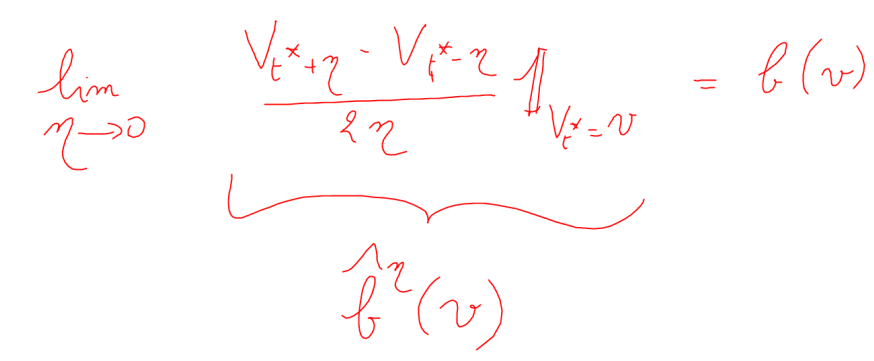 lim η→0 (V_{t*+η} - V_{t*-η}) / 2η 𝟙_{V_{t*}=v} = b(v)
b̂^η(v)